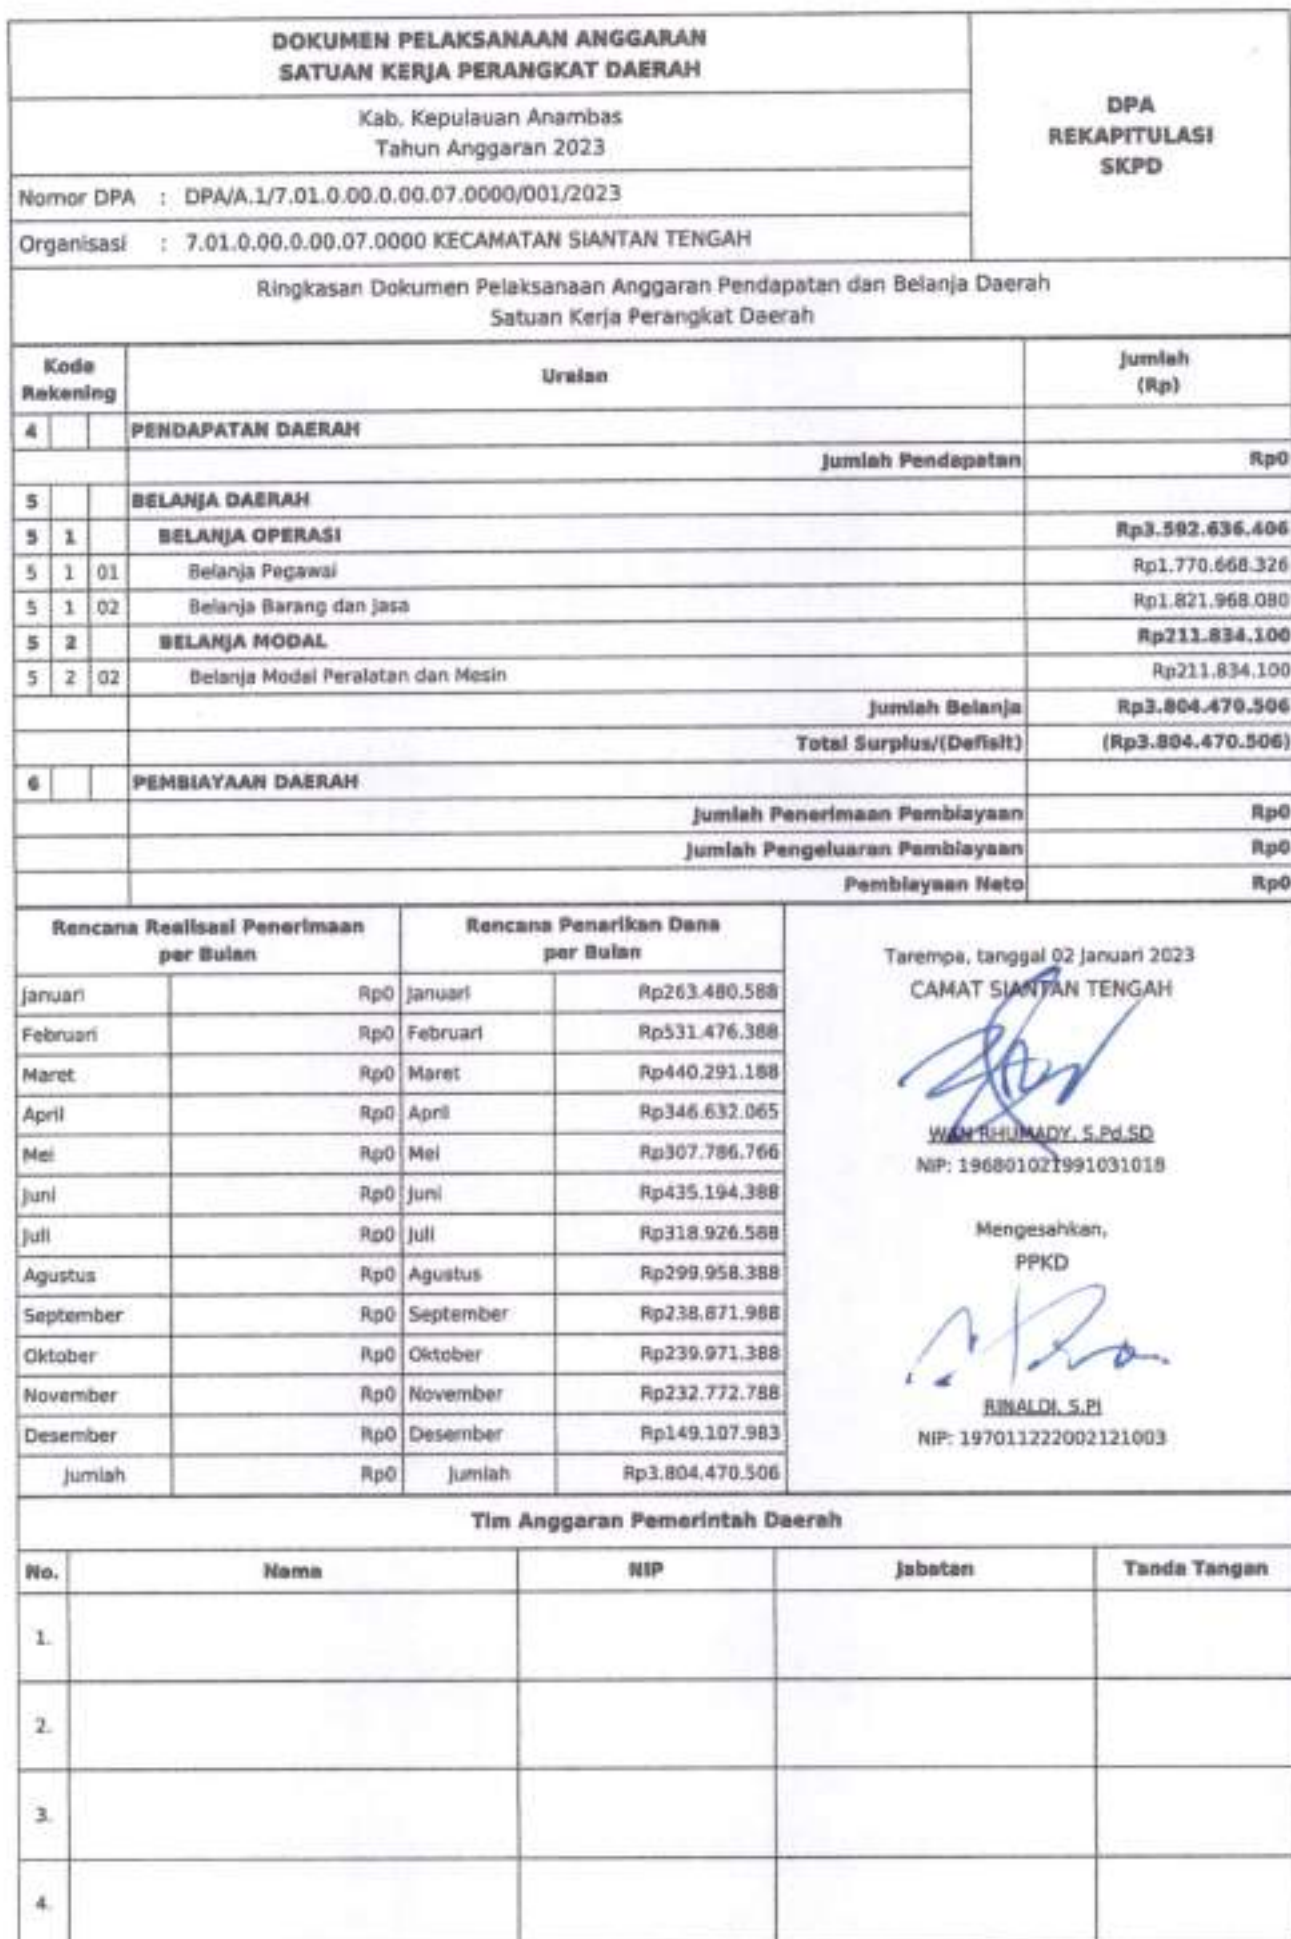 DOKUMEN PELAKSANAAN ANGGARAN
SATUAN KERJA PERANGKAT DAERAH
Kab. Kepulauan Anambas
Tahun Anggaran 2023
DPA
REKAPITULASI
SKPD
Nomor DPA : DPA/A.1/7.01.0.00.0.00.07.0000/001/2023
Organisasi : 7.01.0.00.0.00.07.0000 KECAMATAN SIANTAN TENGAH
Ringkasan Dokumen Pelaksanaan Anggaran Pendapatan dan Belanja Daerah
Satuan Kerja Perangkat Daerah
Kode Rekening Uraian Jumlah (Rp)
4 PENDAPATAN DAERAH
Jumlah Pendapatan Rp0
5 BELANJA DAERAH
5 1 BELANJA OPERASI Rp3.592.636.406
5 1 01 Belanja Pegawai Rp1.770.668.326
5 1 02 Belanja Barang dan Jasa Rp1.821.968.080
5 2 BELANJA MODAL Rp211.834.100
5 2 02 Belanja Modal Peralatan dan Mesin Rp211.834.100
Jumlah Belanja Rp3.804.470.506
Total Surplus/(Defisit) (Rp3.804.470.506)
6 PEMBIAYAAN DAERAH
Jumlah Penerimaan Pembiayaan Rp0
Jumlah Pengeluaran Pembiayaan Rp0
Pembiayaan Neto Rp0
Rencana Realisasi Penerimaan per Bulan Rencana Penarikan Dana per Bulan
Januari Rp0 Januari Rp263.480.588
Februari Rp0 Februari Rp531.476.388
Maret Rp0 Maret Rp440.291.188
April Rp0 April Rp346.632.065
Mei Rp0 Mei Rp307.786.766
Juni Rp0 Juni Rp435.194.388
Juli Rp0 Juli Rp318.926.588
Agustus Rp0 Agustus Rp299.958.388
September Rp0 September Rp238.871.988
Oktober Rp0 Oktober Rp239.971.388
November Rp0 November Rp232.772.788
Desember Rp0 Desember Rp149.107.983
Jumlah Rp0 Jumlah Rp3.804.470.506
Tarempa, tanggal 02 Januari 2023
CAMAT SIANTAN TENGAH
WAN RHUMADY, S.Pd.SD
NIP: 196801021991031018
Mengesahkan,
PPKD
RINALDI, S.PI
NIP: 197011222002121003
Tim Anggaran Pemerintah Daerah
No. Nama NIP Jabatan Tanda Tangan
1.
2.
3.
4.